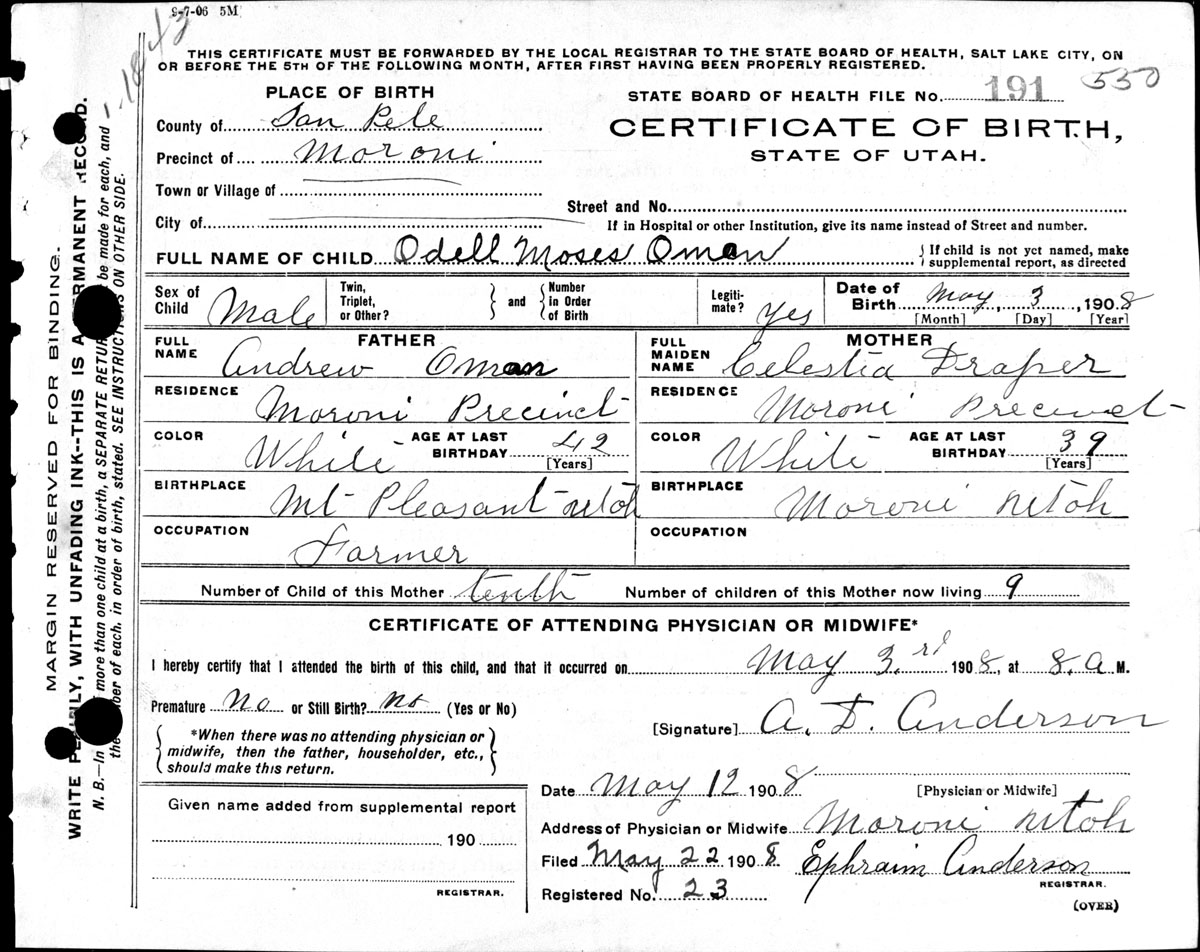 9-7-06 5M
THIS CERTIFICATE MUST BE FORWARDED BY THE LOCAL REGISTRAR TO THE STATE BOARD OF HEALTH, SALT LAKE CITY, ON
OR BEFORE THE 5TH OF THE FOLLOWING MONTH, AFTER FIRST HAVING BEEN PROPERLY REGISTERED.
PLACE OF BIRTH
STATE BOARD OF HEALTH FILE No. 191 550
County of San Pete
CERTIFICATE OF BIRTH,
Precinct of Moroni
STATE OF UTAH.
Town or Village of
Street and No.
City of
If in Hospital or other Institution, give its name instead of Street and number.
FULL NAME OF CHILD Odell Moses Oman { If child is not yet named, make
supplemental report, as directed
Sex of Child Male Twin, Triplet, or Other? } and { Number in Order of Birth Legiti-mate? yes Date of Birth May 3, 1908
[Month] [Day] [Year]
FATHER MOTHER
FULL NAME Andrew Oman FULL MAIDEN NAME Celestia Draper
RESIDENCE Moroni Precinct RESIDENCE Moroni Precinct
COLOR White AGE AT LAST BIRTHDAY 42 [Years] COLOR White AGE AT LAST BIRTHDAY 39 [Years]
BIRTHPLACE Mt Pleasant Utah BIRTHPLACE Moroni Utah
OCCUPATION Farmer OCCUPATION
Number of Child of this Mother tenth Number of children of this Mother now living 9
CERTIFICATE OF ATTENDING PHYSICIAN OR MIDWIFE*
I hereby certify that I attended the birth of this child, and that it occurred on May 3.rd 1908, at 8.a M.
Premature No or Still Birth? no (Yes or No)
[Signature] A. D. Anderson
{ *When there was no attending physician or
midwife, then the father, householder, etc.,
should make this return. }
Date May 12 1908 [Physician or Midwife]
Given name added from supplemental report
190
REGISTRAR.
Address of Physician or Midwife Moroni Utah
Filed May 22 1908 Ephraim Anderson
REGISTRAR.
Registered No. 23
(OVER)
MARGIN RESERVED FOR BINDING.
WRITE WITH UNFADING INK--THIS IS A PERMANENT RECORD.
N. B.—In more than one child at a birth, a SEPARATE RETURN be made for each, and
the of each, in order of birth, stated. SEE INSTRUCTIONS ON OTHER SIDE.